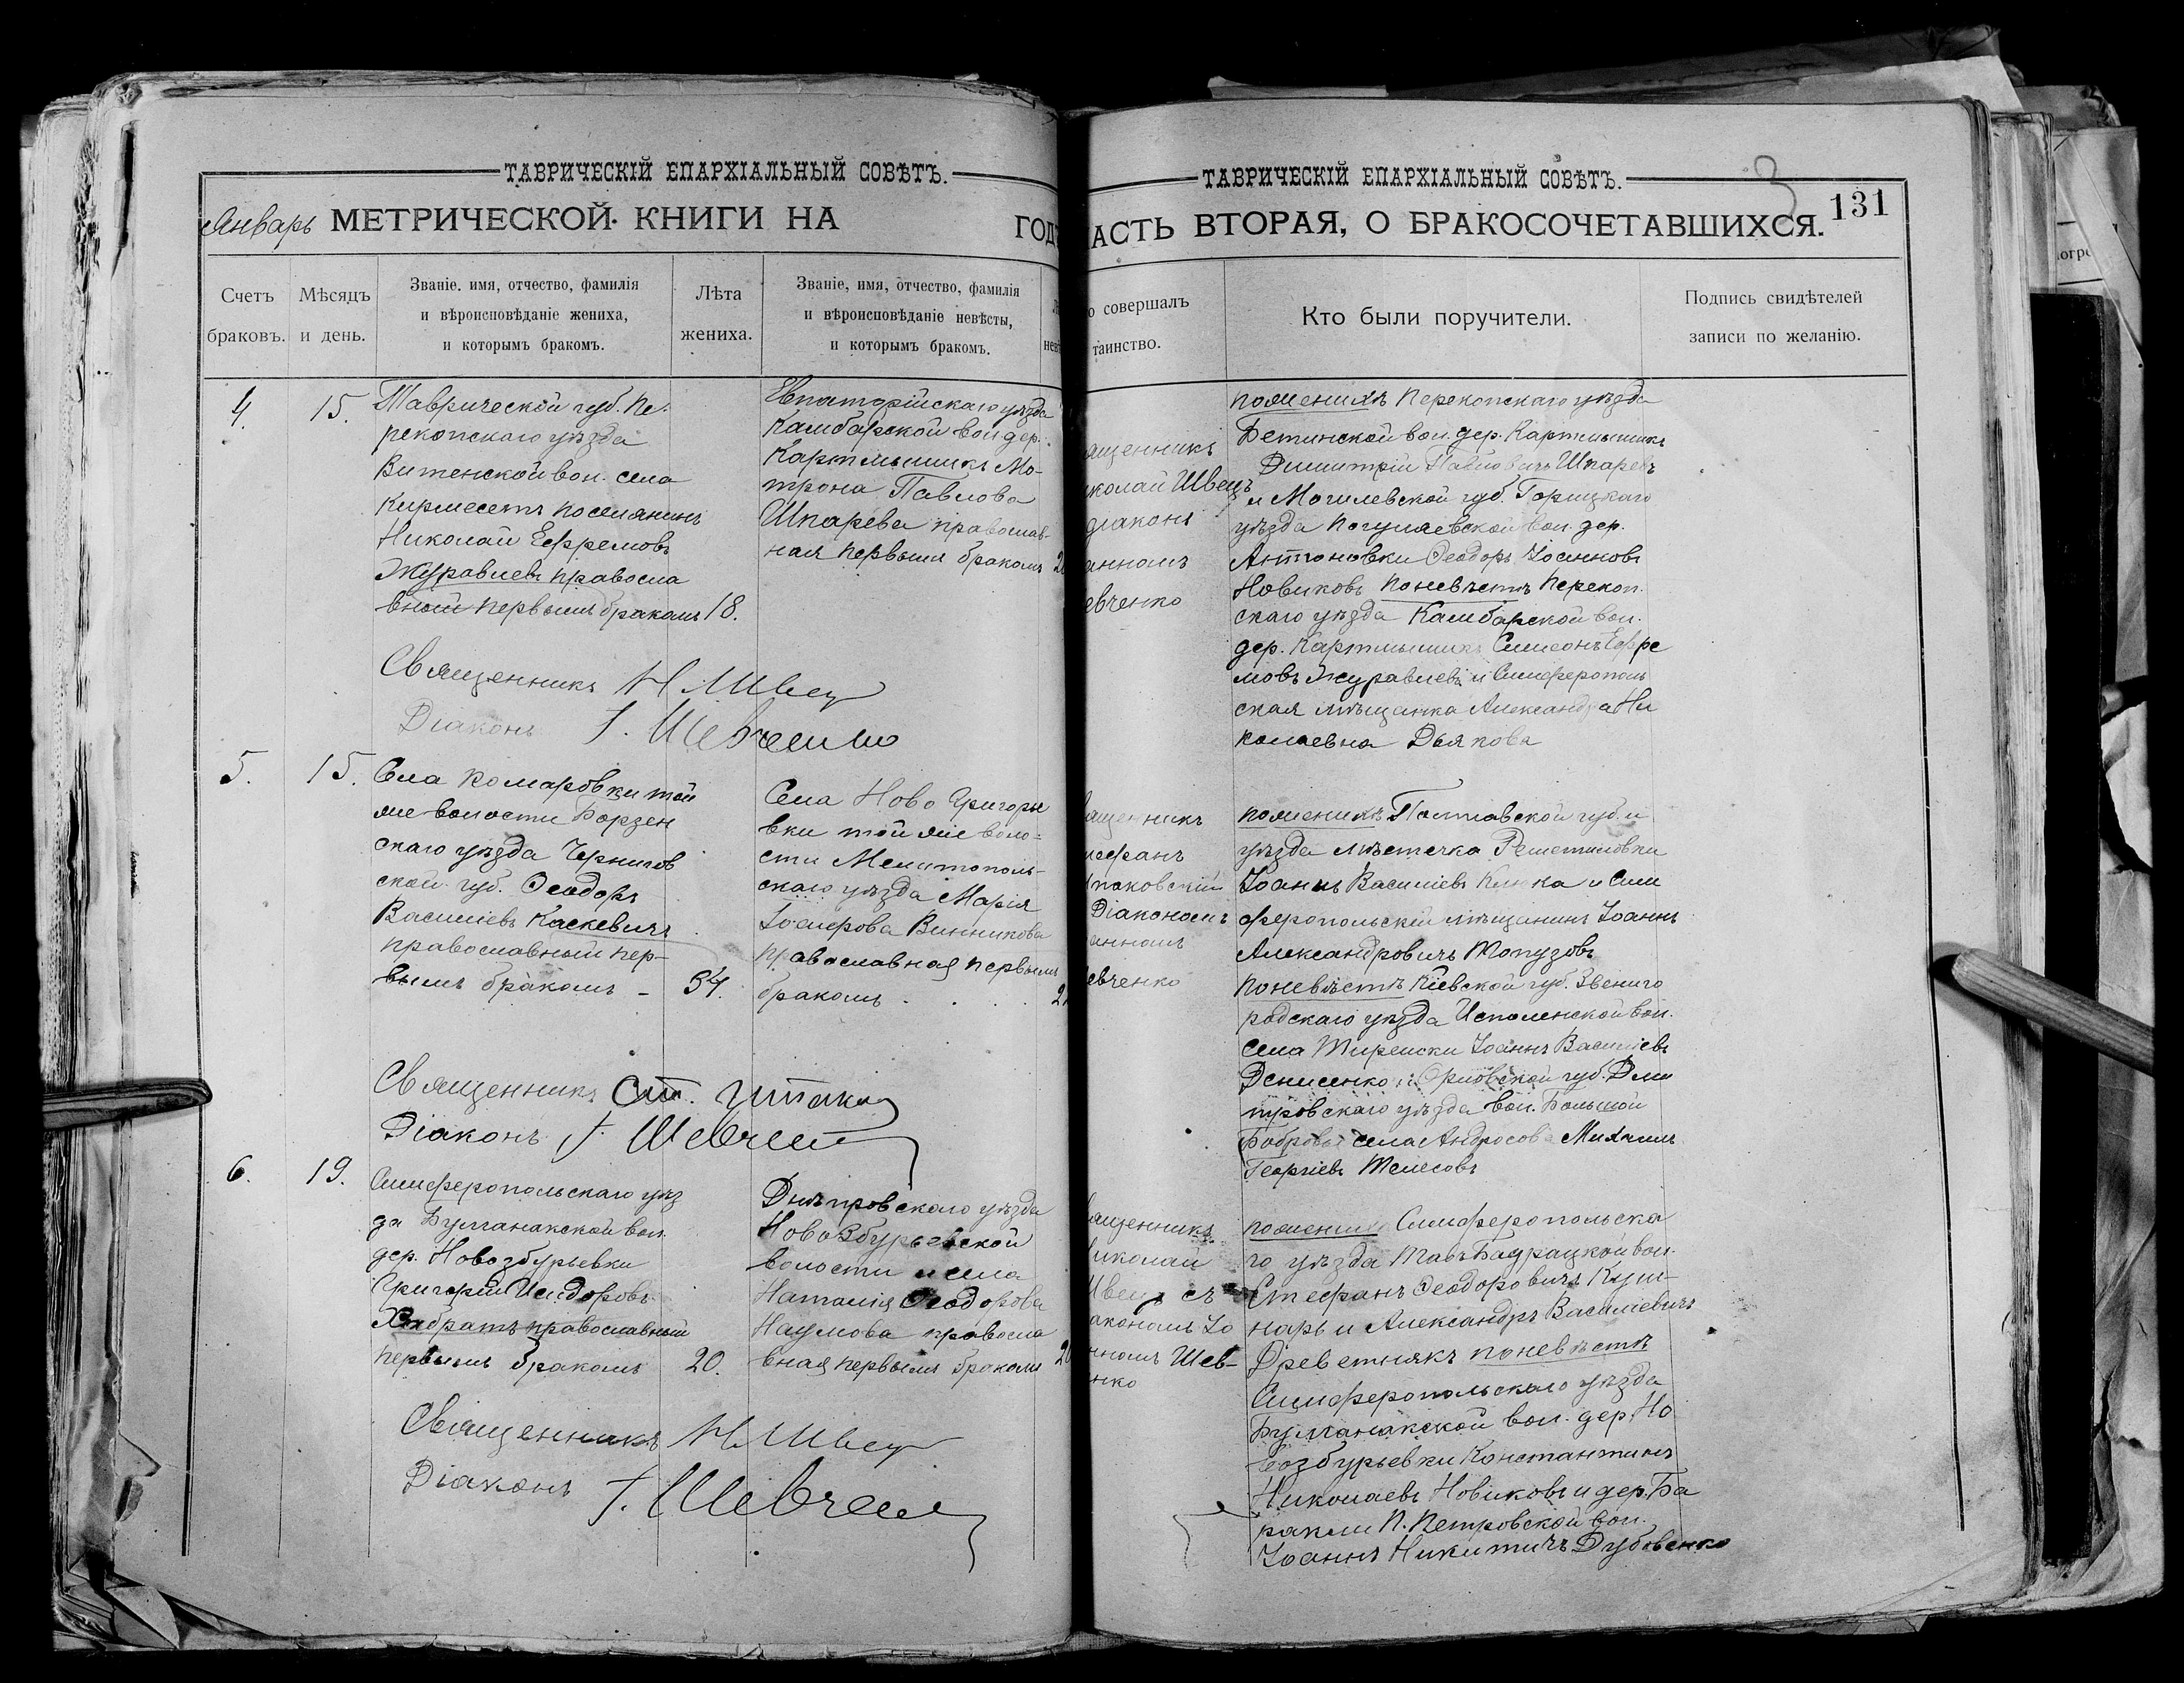 ТАВРИЧЕСКІЙ ЕПАРХІАЛЬНЫЙ СОВѢТЪ.
Январь МЕТРИЧЕСКОЙ КНИГИ НА ГОД
Счетъ браковъ.
Мѣсяцъ и день.
Званіе. имя, отчество, фамилія
и вѣроисповѣданіе жениха,
и которымъ бракомъ.
Лѣта жениха.
Званіе, имя, отчество, фамилія
и вѣроисповѣданіе невѣсты,
и которымъ бракомъ.
4.
15.
Таврической губ. Пе-
рекопскаго уѣзда
Витенской вол. села
Кирлесетъ поселянинъ
Николай Ефремовъ
Журавлевъ правосла
вный первымъ бракомъ
18.
Евпаторійскаго уѣзда
Камбарской вол. дер.
Картмышикъ Мо-
трона Павлова
Шпарева православ-
ная первымъ бракомъ
Священникъ Н Швец
Діаконъ І. Шевченко
5.
15.
Села Комаровки той
же волости Борзен
скаго уѣзда Чернигов
ской губ. Ѳеодоръ
Василіевъ Каскевичъ
православный пер-
вымъ бракомъ –
34.
Села Ново Григорье
вки той же воло-
сти Мелитополь-
скаго уѣзда Марія
Іосифова Винникова
православная первымъ
бракомъ . . . .
Священникъ Ст.
Діаконъ І. Шевчен
6.
19.
Симферопольскаго уѣз
да Булганакской вол.
дер. Новозбурьевки
Григорій Исидоровъ
Хабратъ православный
первымъ бракомъ
20.
Днѣпровскаго уѣзда
Новозбурьевской
волости и села
Наталія Ѳеодорова
Наумова правосла
вная первымъ бракомъ
Священникъ Н. Швец
Діаконъ І. Шевчен
ТАВРИЧЕСКІЙ ЕПАРХІАЛЬНЫЙ СОВѢТЪ.
3
131
АСТЬ ВТОРАЯ, О БРАКОСОЧЕТАВШИХСЯ.
о совершалъ
таинство.
Кто были поручители.
Подпись свидѣтелей
записи по желанію.
ященникъ
иколай Швецъ
діаконъ
анномъ
евченко
по женихѣ Перекопскаго уѣзда
Бетинской вол. дер. Картмышикъ
Димитрій Павловичъ Шпаревъ
и Могилевской губ. Горицкаго
уѣзда Погуляевской вол. дер.
Антоновки Ѳеодоръ Іоанновъ
Новиковъ по невѣстѣ Перекоп.
скаго уѣзда Камбарской вол.
дер. Картмышикъ Симеонъ Ефре
мовъ Журавлевъ и Симферополь
ская мѣщанка Александра Ни
колаевна Дьякова
ященникъ
тефанъ
паковскій
Діакономъ
анномъ
евченко
по женихѣ Полтавской губ. и
уѣзда мѣстечка Решетиловки
Іоаннъ Василіевъ Клюка и Сим
феропольскій мѣщанинъ Іоаннъ
Александровичъ Топузовъ
по невѣстѣ Кіевской губ. Звениго
родскаго уѣзда Исполенской вол.
села Тирешки Іоаннъ Василіевъ
Денисенко и Орловской губ. Дми
тровскаго уѣзда вол. Большой
Бобровой села Андросова Михаилъ
Георгіевъ Телесовъ
ященникъ
иколай
Швецъ съ
акономъ Іо
нномъ Шев-
нко
по женихѣ Симферопольска
го уѣзда Тавъ Бадрацкой вол.
Стефанъ Ѳеодоровичъ Куш-
нарь и Александръ Василіевичъ
Древетнякъ по невѣстѣ
Симферопольскаго уѣзда
Булганакской вол. дер. Но
возбурьевки Константинъ
Николаевъ Новиковъ и дер. Ба
ракли П. Петровской вол.
Іоаннъ Никитичъ Дубовенко